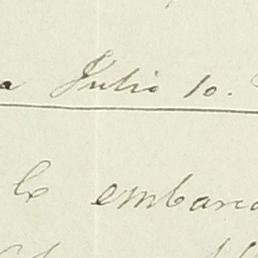 a Julio 10.
lo embarc